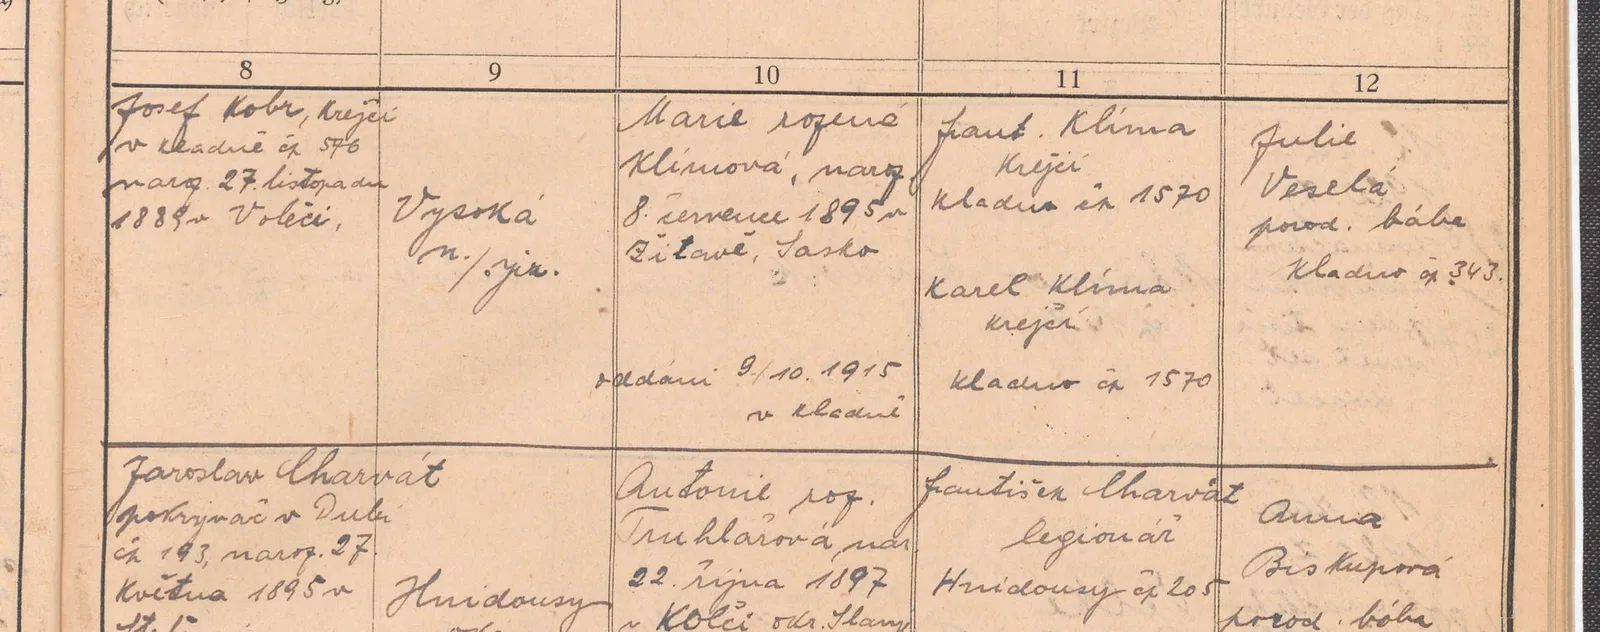 8
9
10
11
12
Josef Kobr, krejčí
v Kladně čp 576
naroz. 27. listopadu
1889 v Volečí,
Vysoká
n./Jiz.
Marie rozená
Klímová, naroz.
8. července 1895 v
Žitavě, Sasko
oddáni 9./10. 1915
v Kladně
Frant. Klíma
krejčí
Kladno čp 1570
Karel Klíma
krejčí
Kladno čp 1570
Julie
Veselá
porod. bába
Kladno čp 343.
Jaroslav Charvát
pokrývač v Dubí
čp 193, naroz. 27.
května 1895 v
Hnidousy
Antonie roz.
Truhlářová, nar.
22. října 1897
v Kolči okr. Slaný
František Charvát
legionář
Hnidousy čp 205
Anna
Biskupová
porod. bába